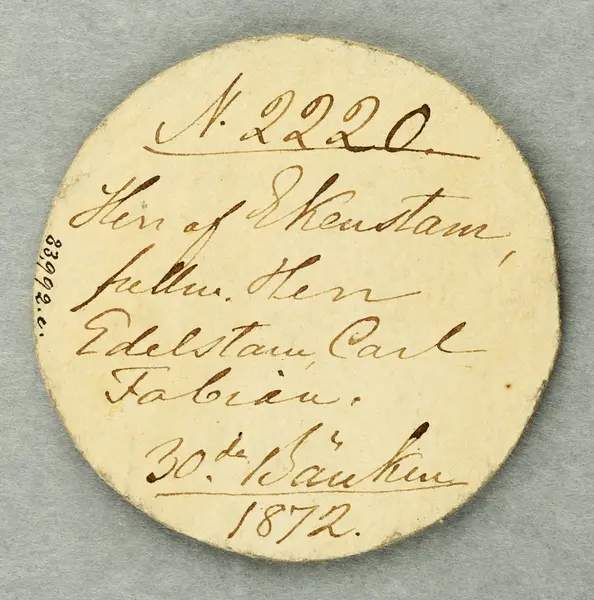 N. 2220.
Herr af Ekenstam,
fullm. Herr
Edelstam, Carl
Fabian.
30.de Bänken
1872.
23,992.c.